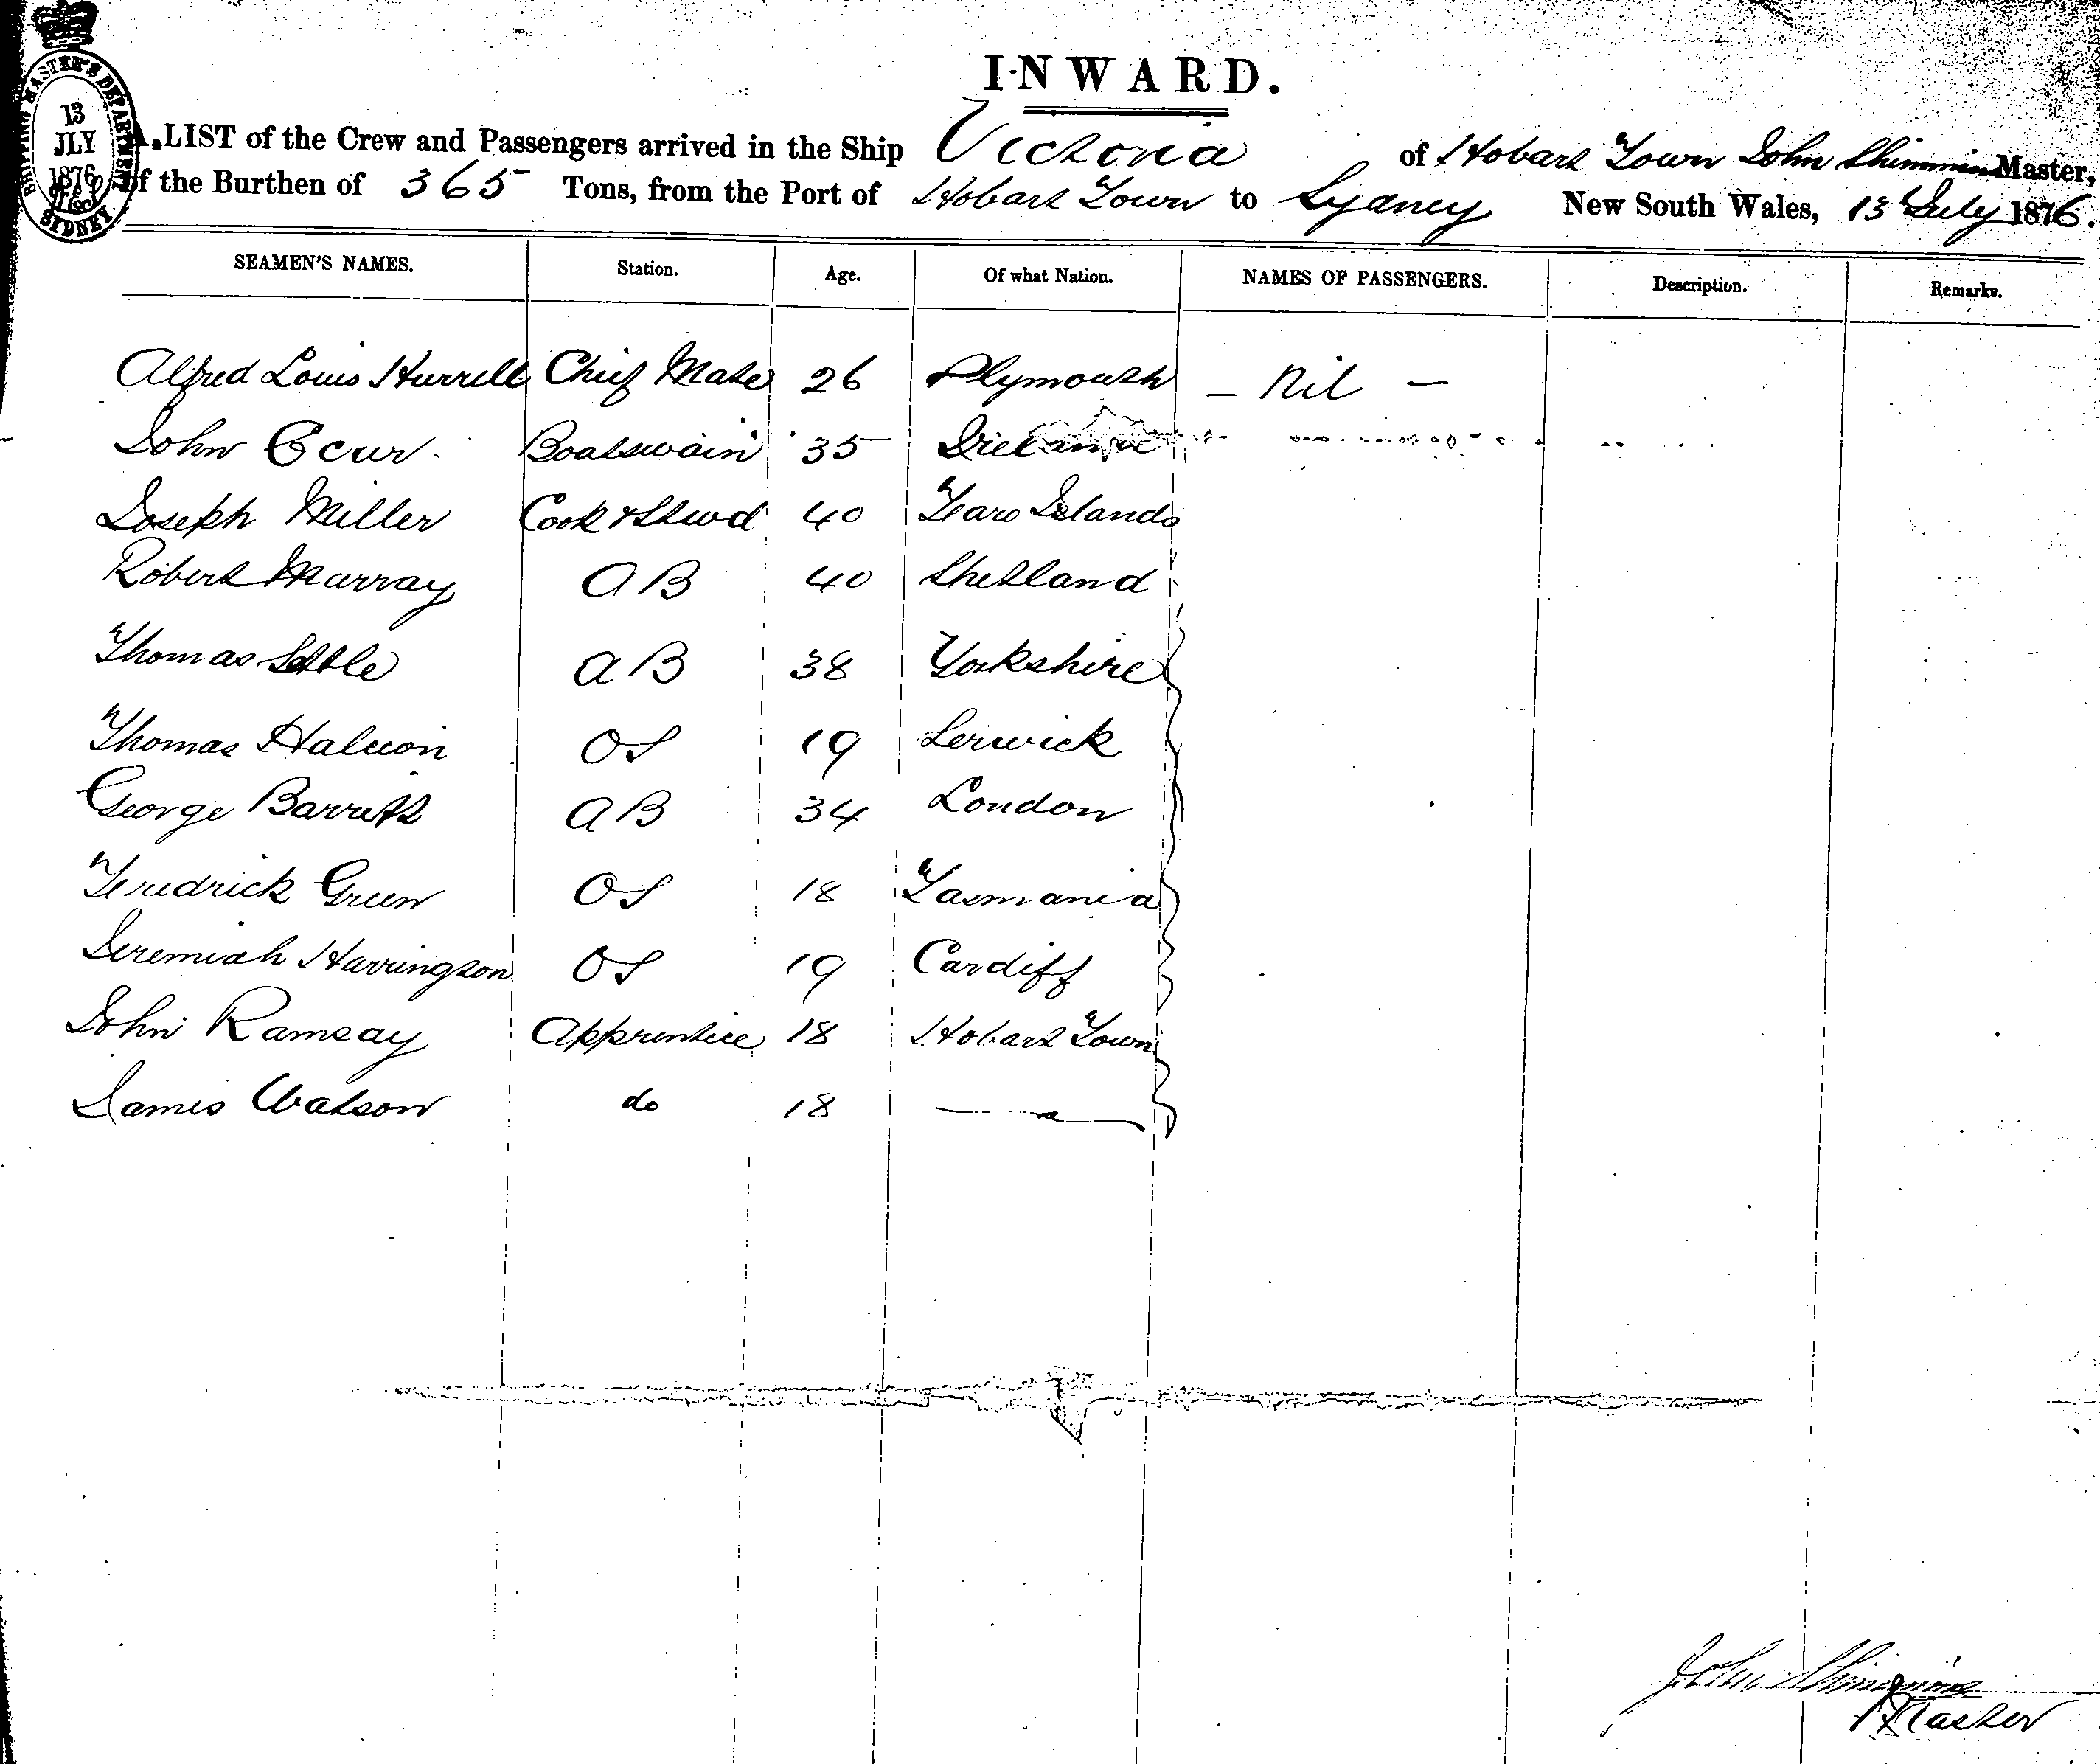 INWARD.
SHIPPING MASTER'S DEPARTMENT
13
JLY
1876
SYDNEY
A LIST of the Crew and Passengers arrived in the Ship Victoria of Hobart Town John Shimmin Master,
of the Burthen of 365 Tons, from the Port of Hobart Town to Sydney New South Wales, 13 July 1876.
SEAMEN'S NAMES. Station. Age. Of what Nation. NAMES OF PASSENGERS. Description. Remarks.
Alfred Louis Hurrell Chief Mate 26 Plymouth — Nil —
John Boatswain 35
Joseph Miller Cook & Stwd 40 Faro Islands
Robert Murray AB 40 Shetland
Thomas AB 38 Yorkshire
Thomas OS 19 Lerwick
George Barrett AB 34 London
Fredrick Green OS 18 Tasmania
Jeremiah Harrington OS 19 Cardiff
John Ramsay Apprentice 18 Hobart Town
James Watson do 18
John Shimmin
Master